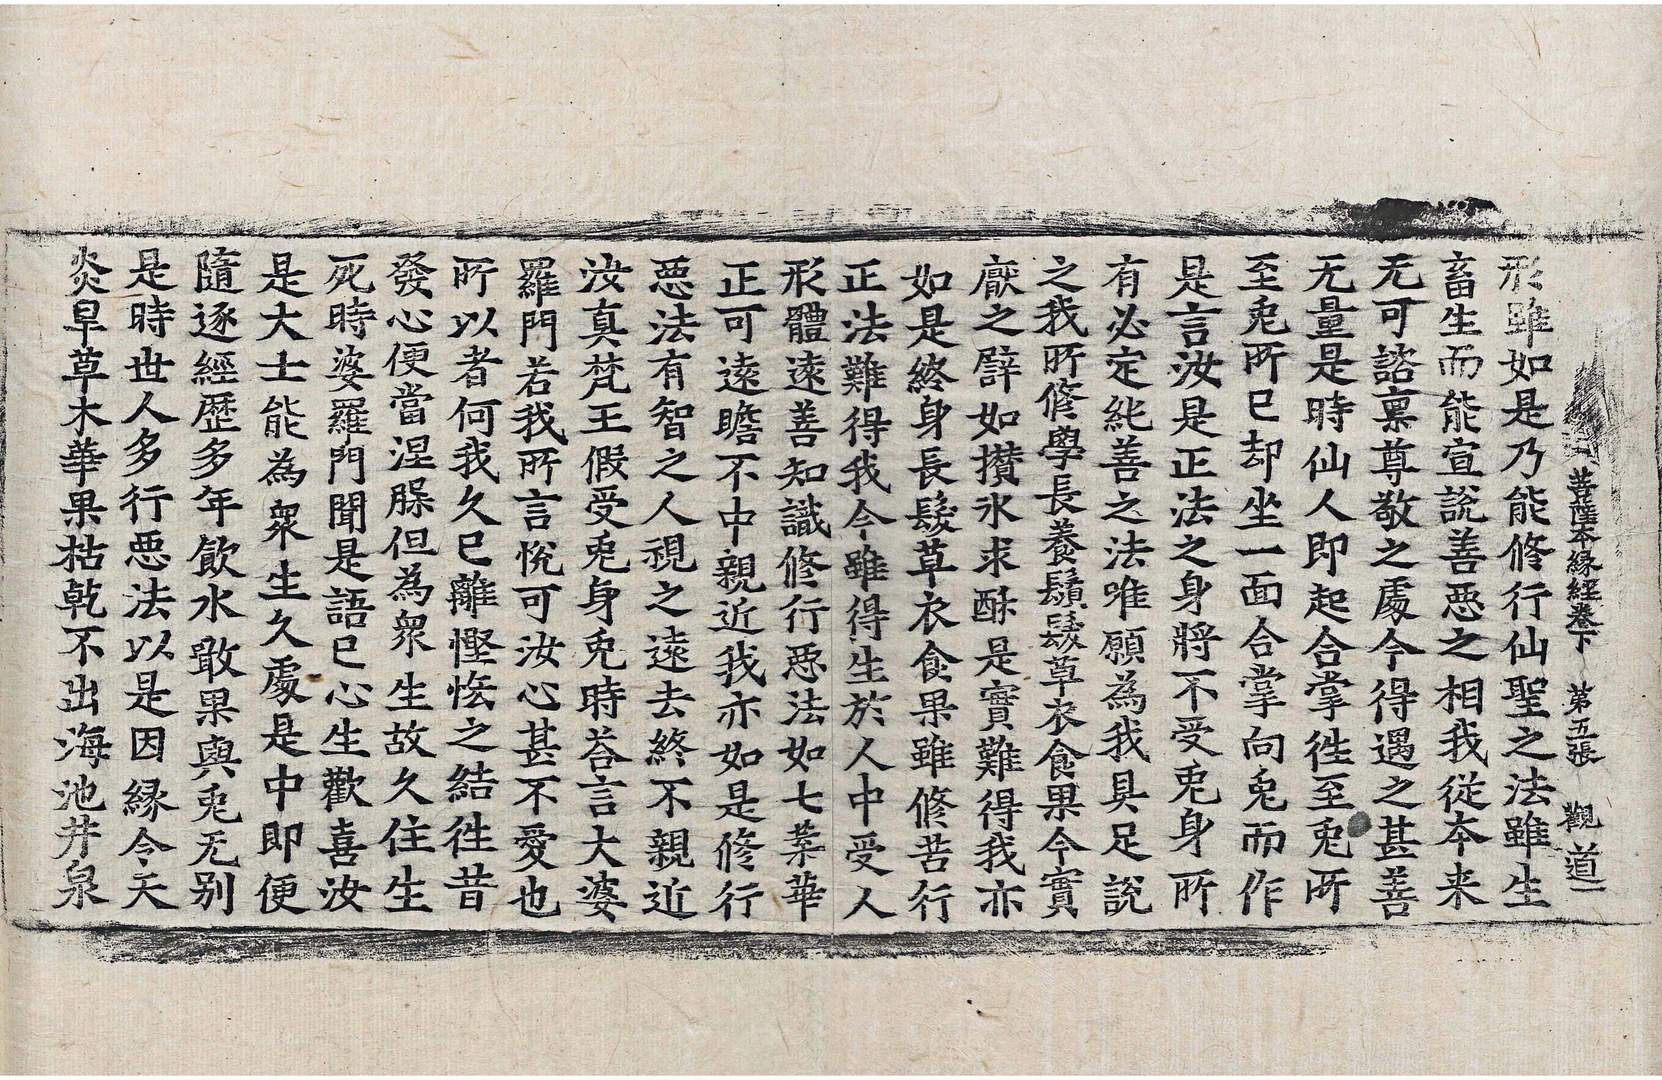 菩薩本縁經卷下 第五張 觀 道一
形雖如是乃能修行仙聖之法雖生
畜生而能宣說善惡之相我從本来
无可諮禀尊敬之處今得遇之甚善
无量是時仙人即起合掌徃至兎所
至兎所已却坐一面合掌向兎而作
是言汝是正法之身將不受兎身所
有必定純善之法唯願為我具足說
之我所修學長養鬚髮草衣食果今實
厭之譬如攢氷求酥是實難得我亦
如是終身長髮草衣食果雖修苦行
正法難得我今雖得生於人中受人
形體遠善知識修行惡法如七葉華
正可遠瞻不中親近我亦如是修行
惡法有智之人視之遠去終不親近
汝真梵王假受兎身兎時荅言大婆
羅門若我所言悅可汝心甚不愛也
所以者何我久已離慳悋之結徃昔
發心便當涅槃但為衆生故久住生
死時婆羅門聞是語已心生歡喜汝
是大士能為衆生久處是中即便
隨逐經歷多年飲水敢果與兎无别
是時世人多行惡法以是因縁令天
炎旱草木華果枯乾不出海池井泉